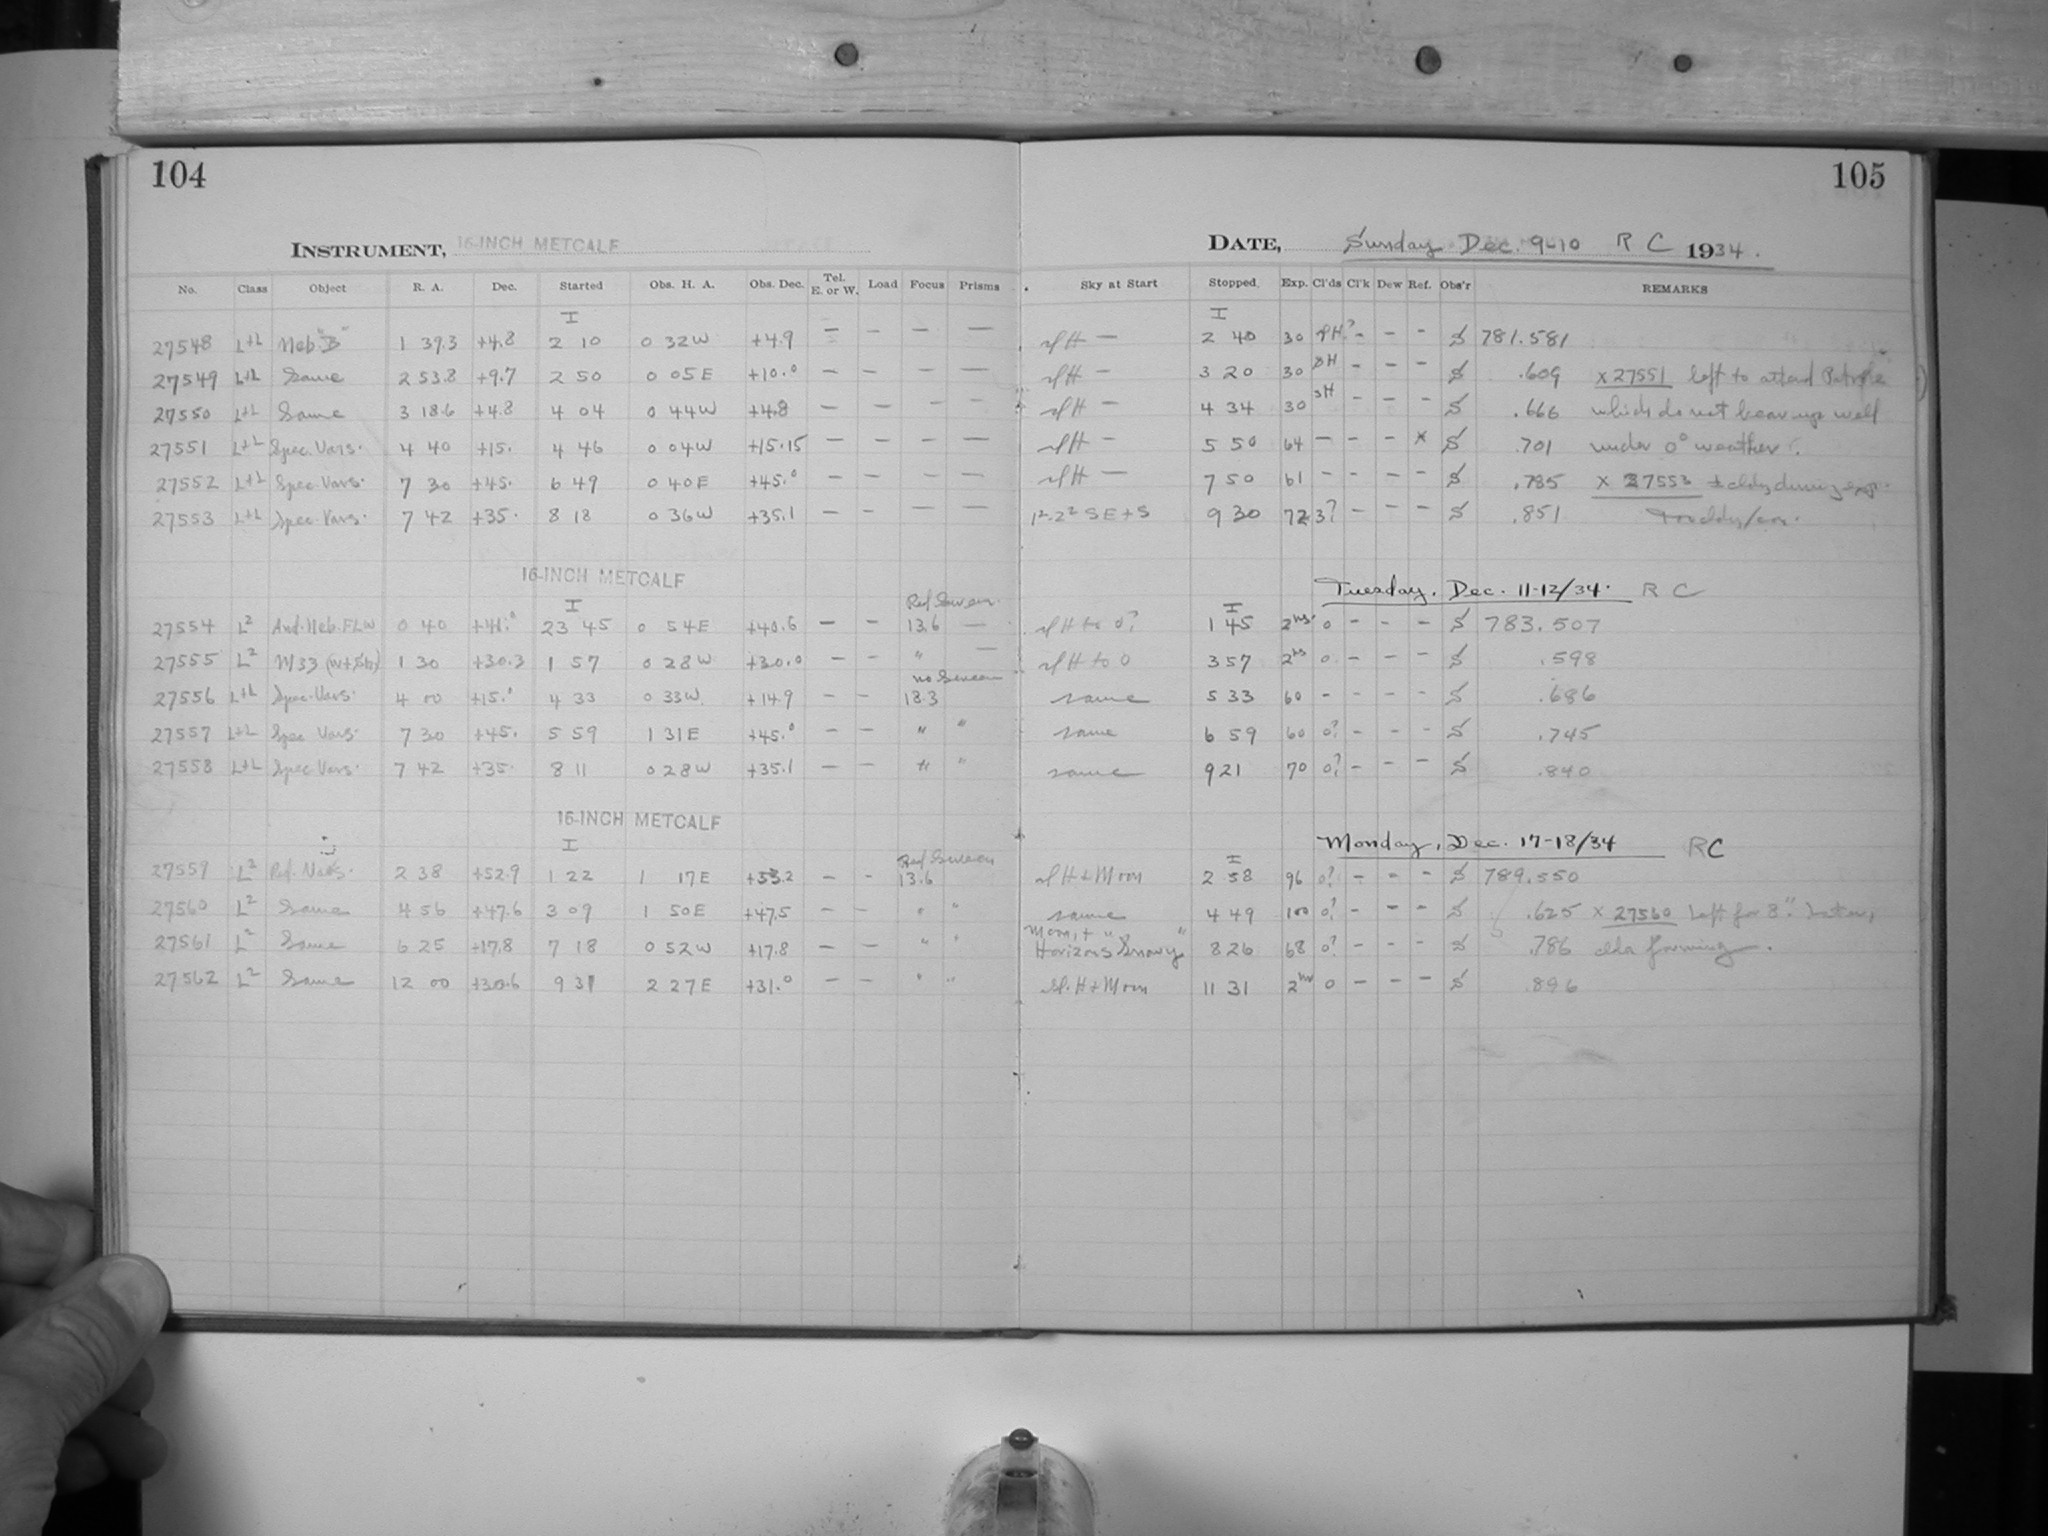 104
105
INSTRUMENT, 16-INCH METCALF
DATE, Sunday Dec. 9-10 R C 1934.
No. Class Object R. A. Dec. Started Obs. H. A. Obs. Dec. Tel. E. or W. Load Focus Prisms Sky at Start Stopped Exp. Cl'ds Cl'k Dew Ref. Obs'r REMARKS
I I
27548 L+L Neb. "B" 1 39.3 +4.8 2 10 0 32W +4.9 — — — — slH — 2 40 30 slH? - - - S 781.581
27549 L+L Same 2 53.8 +9.7 2 50 0 05E +10.0 — — — — slH — 3 20 30 sH - - - S .609 x 27551 left to attend
27550 L+L Same 3 18.6 +4.8 4 04 0 44W +4.8 — — — — slH — 4 34 30 sH - - - S .666 which do not bear up well
27551 L+L Spec. Vars. 4 40 +15. 4 46 0 04W +15.15 — — — — slH — 5 50 64 — - - x S .701 under 0° weather.
27552 L+L Spec. Vars. 7 30 +45. 6 49 0 40E +45.0 — — — — slH — 7 50 61 - - - - S .785 x 27553 + cldy during exp.
27553 L+L Spec. Vars. 7 42 +35. 8 18 0 36W +35.1 — — — — 1²-2² SE+S 9 30 72 3? - - - S .851
16-INCH METCALF
Tuesday, Dec. 11-12/34. R C
I Ref Screen I
27554 L² And. Neb. FLW 0 40 +41.0 23 45 0 54E +40.6 — — 13.6 — slH to 0? 1 45 2hrs. 0 - - - S 783.507
27555 L² M33 (W+Sh) 1 30 +30.3 1 57 0 28W +30.0 — — " — slH to 0 3 57 2hs 0 - - - S .598
no Screen
27556 L+L Spec. Vars. 4 00 +15.0 4 33 0 33W +14.9 — — 18.3 same 5 33 60 - - - - S .686
27557 L+L Spec Vars. 7 30 +45. 5 59 1 31E +45.0 — — " " same 6 59 60 0? - - - S .745
27558 L+L Spec Vars. 7 42 +35. 8 11 0 28W +35.1 — — " " same 9 21 70 0? - - - S .840
16-INCH METCALF
Monday, Dec. 17-18/34 RC
I Ref Screen I
27559 L² Ref. Nebs. 2 38 +52.9 1 22 1 17E +53.2 — - 13.6 slH+Moon 2 58 96 0? - - - S 789.550
27560 L² Same 4 56 +47.6 3 09 1 50E +47.5 — — " " same 4 49 100 0? - - - S .625 x 27560 Left for 8".
Moon, + " "
27561 L² Same 6 25 +17.8 7 18 0 52W +17.8 — — " " Horizons Snowy 8 26 68 0? - - - S .786 clds forming.
27562 L² Same 12 00 +30.6 9 31 2 27E +31.0 — — " " sl.H+Moon 11 31 2hr 0 - - - S .896